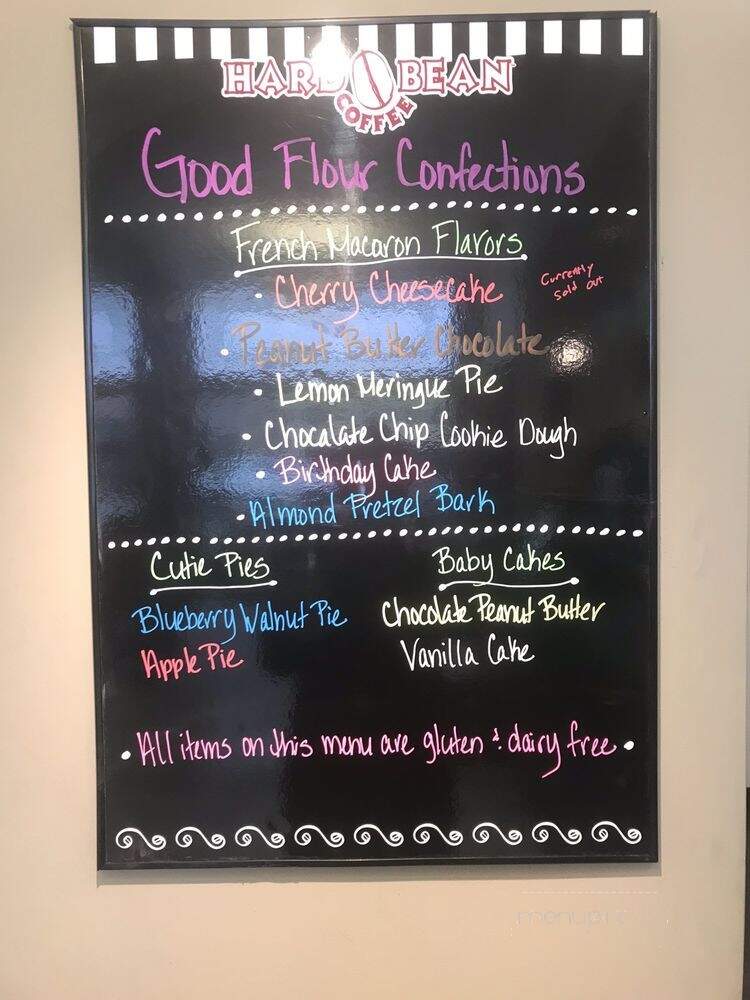 HARD BEAN
COFFEE
Good Flour Confections
French Macaron Flavors
• Cherry Cheesecake
Currently
Sold out
• Peanut Butter Chocolate
• Lemon Meringue Pie
• Chocalate Chip Cookie Dough
• Birthday Cake
• Almond Pretzel Bark
Cutie Pies
Blueberry Walnut Pie
Apple Pie
Baby Cakes
Chocolate Peanut Butter
Vanilla Cake
• All items on this menu are gluten & dairy free •